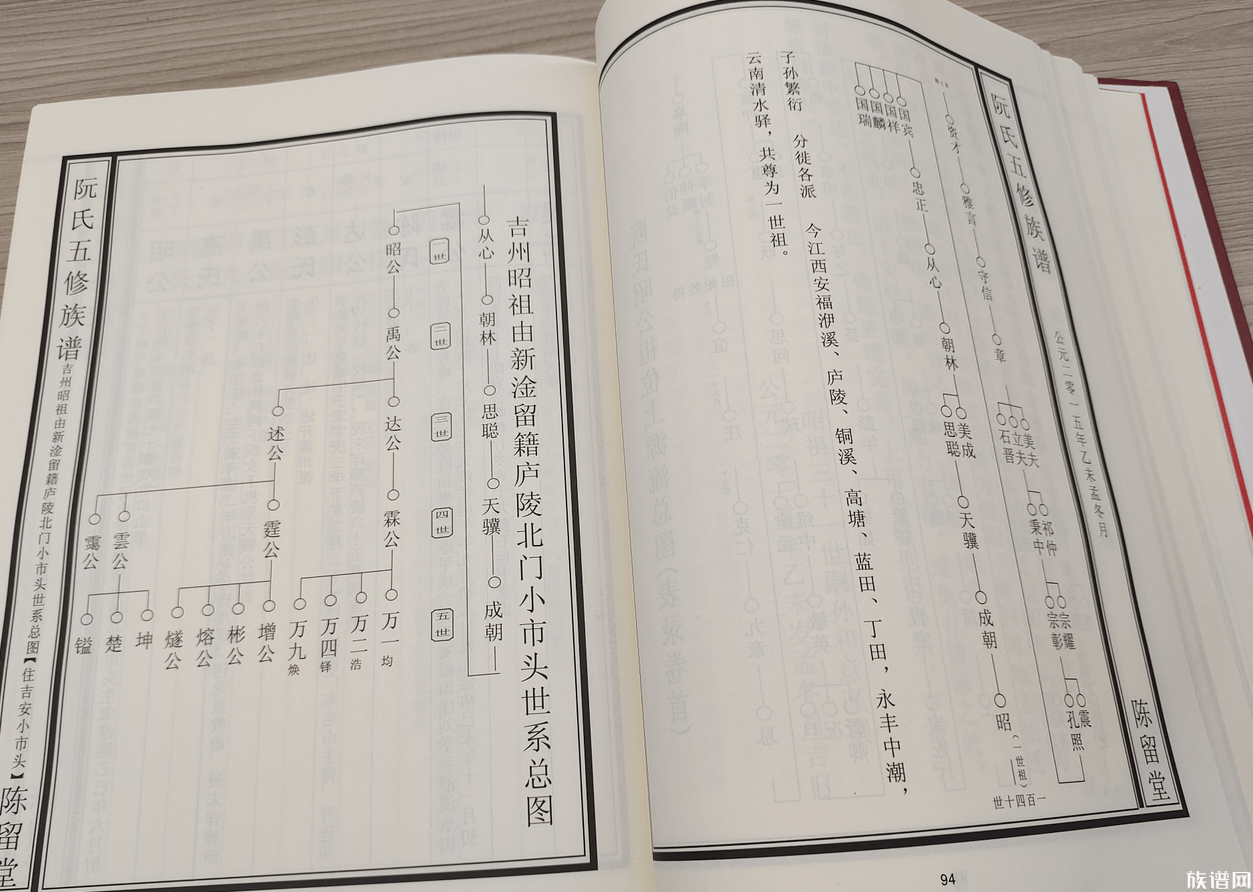 阮氏五修族谱
公元二零一五年乙未孟冬月
陈留堂
一百四十世
资才
雅言
守信
章
美夫
立夫
石晋
祁仲
秉中
宗耀
宗彰
震
孔照
国宾
国祥
国麟
国瑞
忠正
从心
朝林
美成
思聪
天骥
成朝
昭(一世祖)
子孙繁衍 分徙各派 今江西安福洢溪、庐陵、铜溪、高塘、蓝田、丁田,永丰中潮,
云南清水驿,共尊为一世祖。
94
吉州昭祖由新淦留籍庐陵北门小市头世系总图
从心
朝林
思聪
天骥
成朝
一世
二世
三世
四世
五世
昭公
禹公
达公
霖公
万一均
万二浩
万四铎
万九焕
述公
霆公
增公
彬公
熔公
燧公
雲公
坤
楚
镒
霭公
阮氏五修族谱
吉州昭祖由新淦留籍庐陵北门小市头世系总图【住吉安小市头】
陈留堂
族谱网